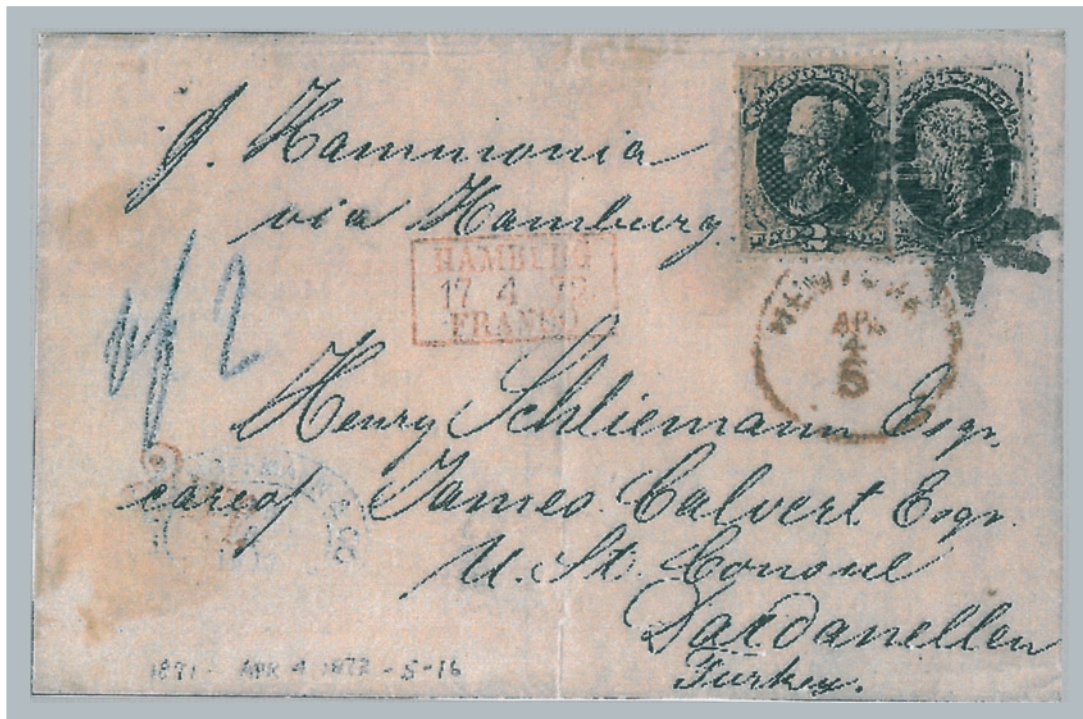 p. Hammonia
via Hamburg.
2
HAMBURG
17 4 72
FRANCO
NEW YORK
APR
4
2
Henry Schliemann Esqr.
care of James Calvert Esqr.
& CO
U. St. Consul
Dardanellen
Turkey.
1871 - APR 4 1872 - 5-16